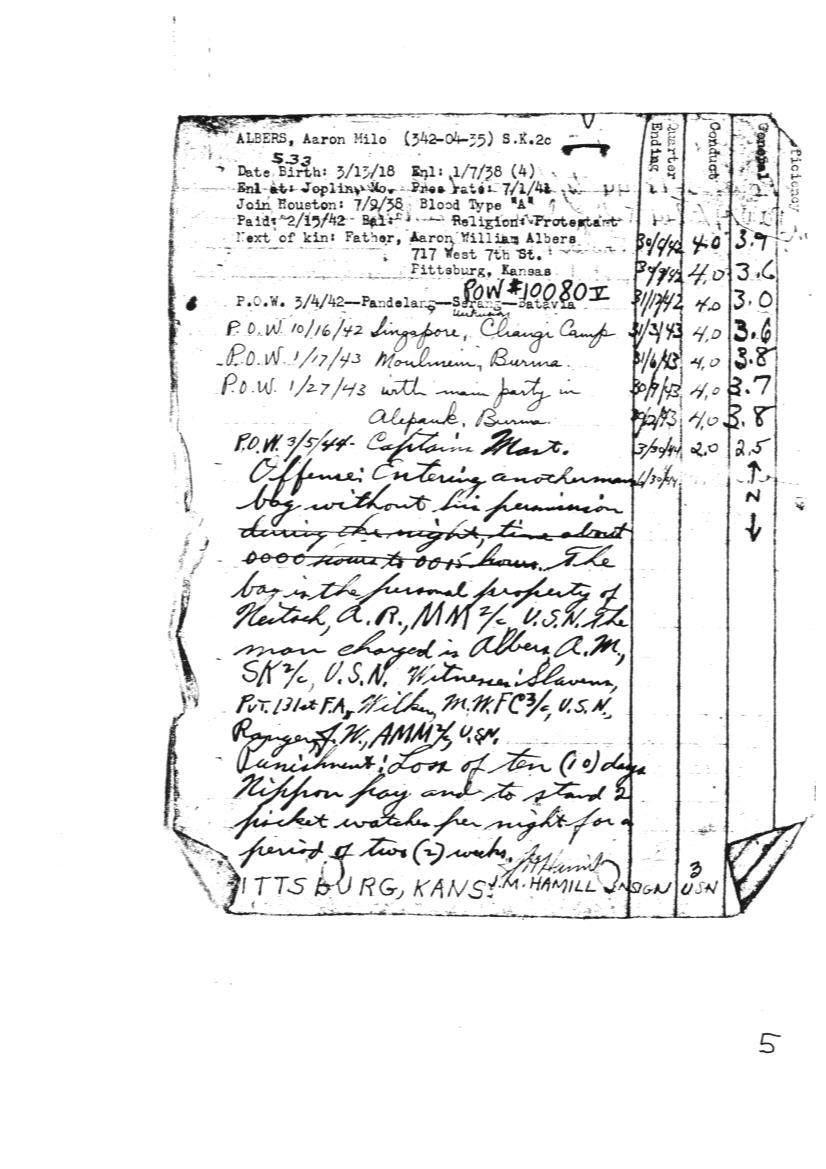 ALBERS, Aaron Milo (342-04-35) S.K.2c
533
Date Birth: 3/13/18 Enl: 1/7/38 (4)
Enl at: Joplin, Mo. Pres rate: 7/1/41
Join Houston: 7/9/38 Blood Type "A"
Paid: 2/15/42 Bal: Religion: Protestant
Next of kin: Father, Aaron William Albers
717 West 7th St.
Pittsburg, Kansas
POW #10080 V
P.O.W. 3/4/42—Pandelang—Serang—Batavia
P.O.W. 10/16/42 Singapore, Changi Camp
P.O.W. 1/17/43 Moulmein, Burma.
P.O.W. 1/27/43 with main party in
Alepauk, Burma.
P.O.W. 3/5/44- Captain's Mast.
Offense: Entering another mans
bag without his permission
during the night, time about
0000 hours to 0015 hours. The
bag is the personal property of
A. R., MM 2/c U.S.N. The
man charged is Albers, A. M.,
SK 2/c, U.S.N. Witnesses: Slavens,
Pvt. 131st F.A., M.W. FC 3/c, U.S.N.,
Ranger, J. W., AMM 2/c, U.S.N.
Punishment: Loss of ten (10) days
Nippon pay and to stand 2
picket watches per night for a
period of two (2) weeks.
ITTSBURG, KANS. J.M. HAMILL ENSIGN USN
3
Quarter Ending Conduct General ficiency
30/6/42 4.0 3.9
30/9/42 4.0 3.6
31/12/42 4.0 3.0
31/3/43 4.0 3.6
31/6/43 4.0 3.8
30/9/43 4.0 3.7
4.0 3.8
3/30/44 2.0 2.5
6/30/44
N
5